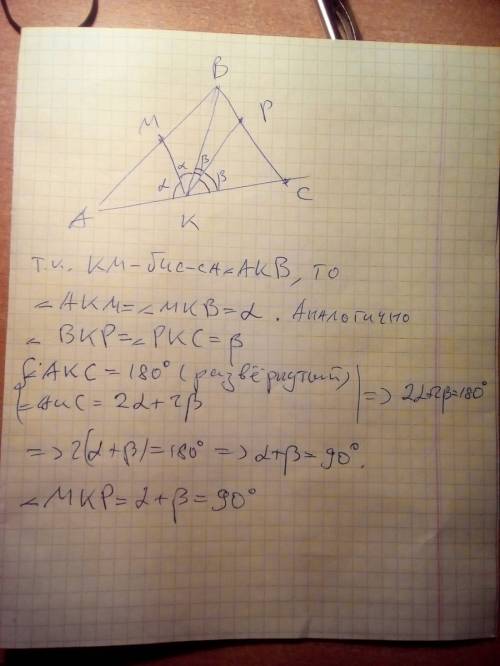 B
M
P
α
β
α
β
A
K
C
т.к. KM-бис-са ∠AKB, то
∠AKM=∠MKB=α. Аналогично
∠BKP=∠PKC=β
{∠AKC=180° (развёрнутый)
∠AKC=2α+2β | => 2α+2β=180°
=>2(α+β)=180° => α+β=90°.
∠MKP=α+β=90°